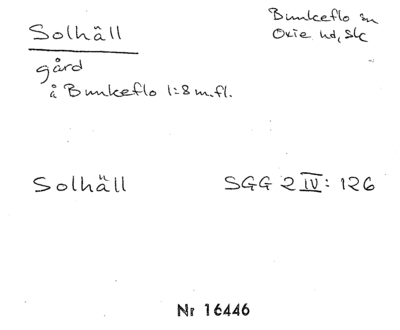 Solhäll
Bunkeflo sn
Oxie hd, Sk
gård
å Bunkeflo 1:8 m.fl.
Solhäll
SGG 2 IV: 126
Nr 16446